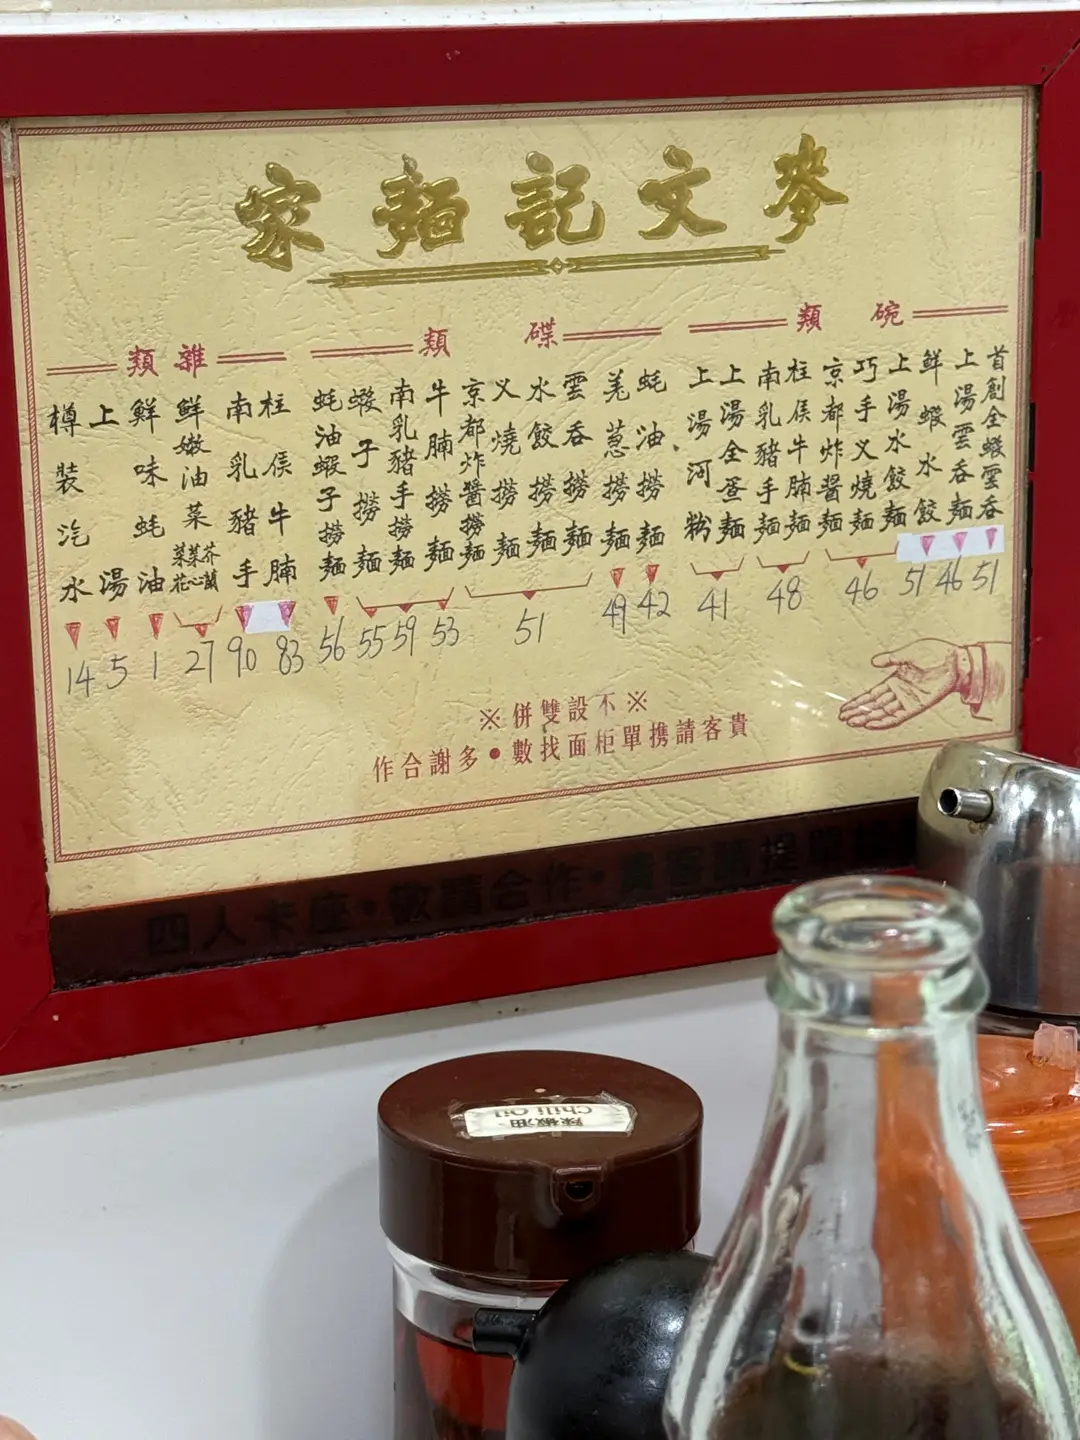 麥文記麵家
碗類
首創全蝦雲吞
51
上湯雲吞麵
46
鮮蝦水餃
51
上湯水餃麵
巧手义燒麵
京都炸醬麵
46
柱侯牛腩麵
南乳豬手麵
48
上湯全蛋麵
上湯河粉
41
碟類
蚝油撈麵
42
羌葱撈麵
49
雲吞撈麵
水餃撈麵
义燒撈麵
京都炸醬撈麵
51
牛腩撈麵
53
南乳豬手撈麵
59
蝦子撈麵
55
蚝油蝦子撈麵
56
雜類
柱侯牛腩
83
南乳豬手
90
鮮嫩油菜
芥蘭
菜心
菜花
27
鮮味蚝油
1
上湯
5
樽裝汽水
14
※不設雙併※
貴客請携單柜面找數•多謝合作
四人卡座•敬請合作•貴客請提
辣椒油
Chili Oil